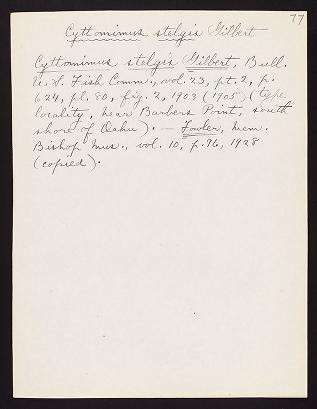 77
Cyttomimus stelgis Gilbert
Cyttomimus stelgis Gilbert, Bull.
U.S. Fish Comm., vol. 23, pt. 2, p.
624, pl. 80, fig. 2, 1903 (1905) (type
locality, near Barbers Point, south
shore of Oahu). — Fowler, Mem.
Bishop Mus., vol. 10, p. 96, 1928
(copied).